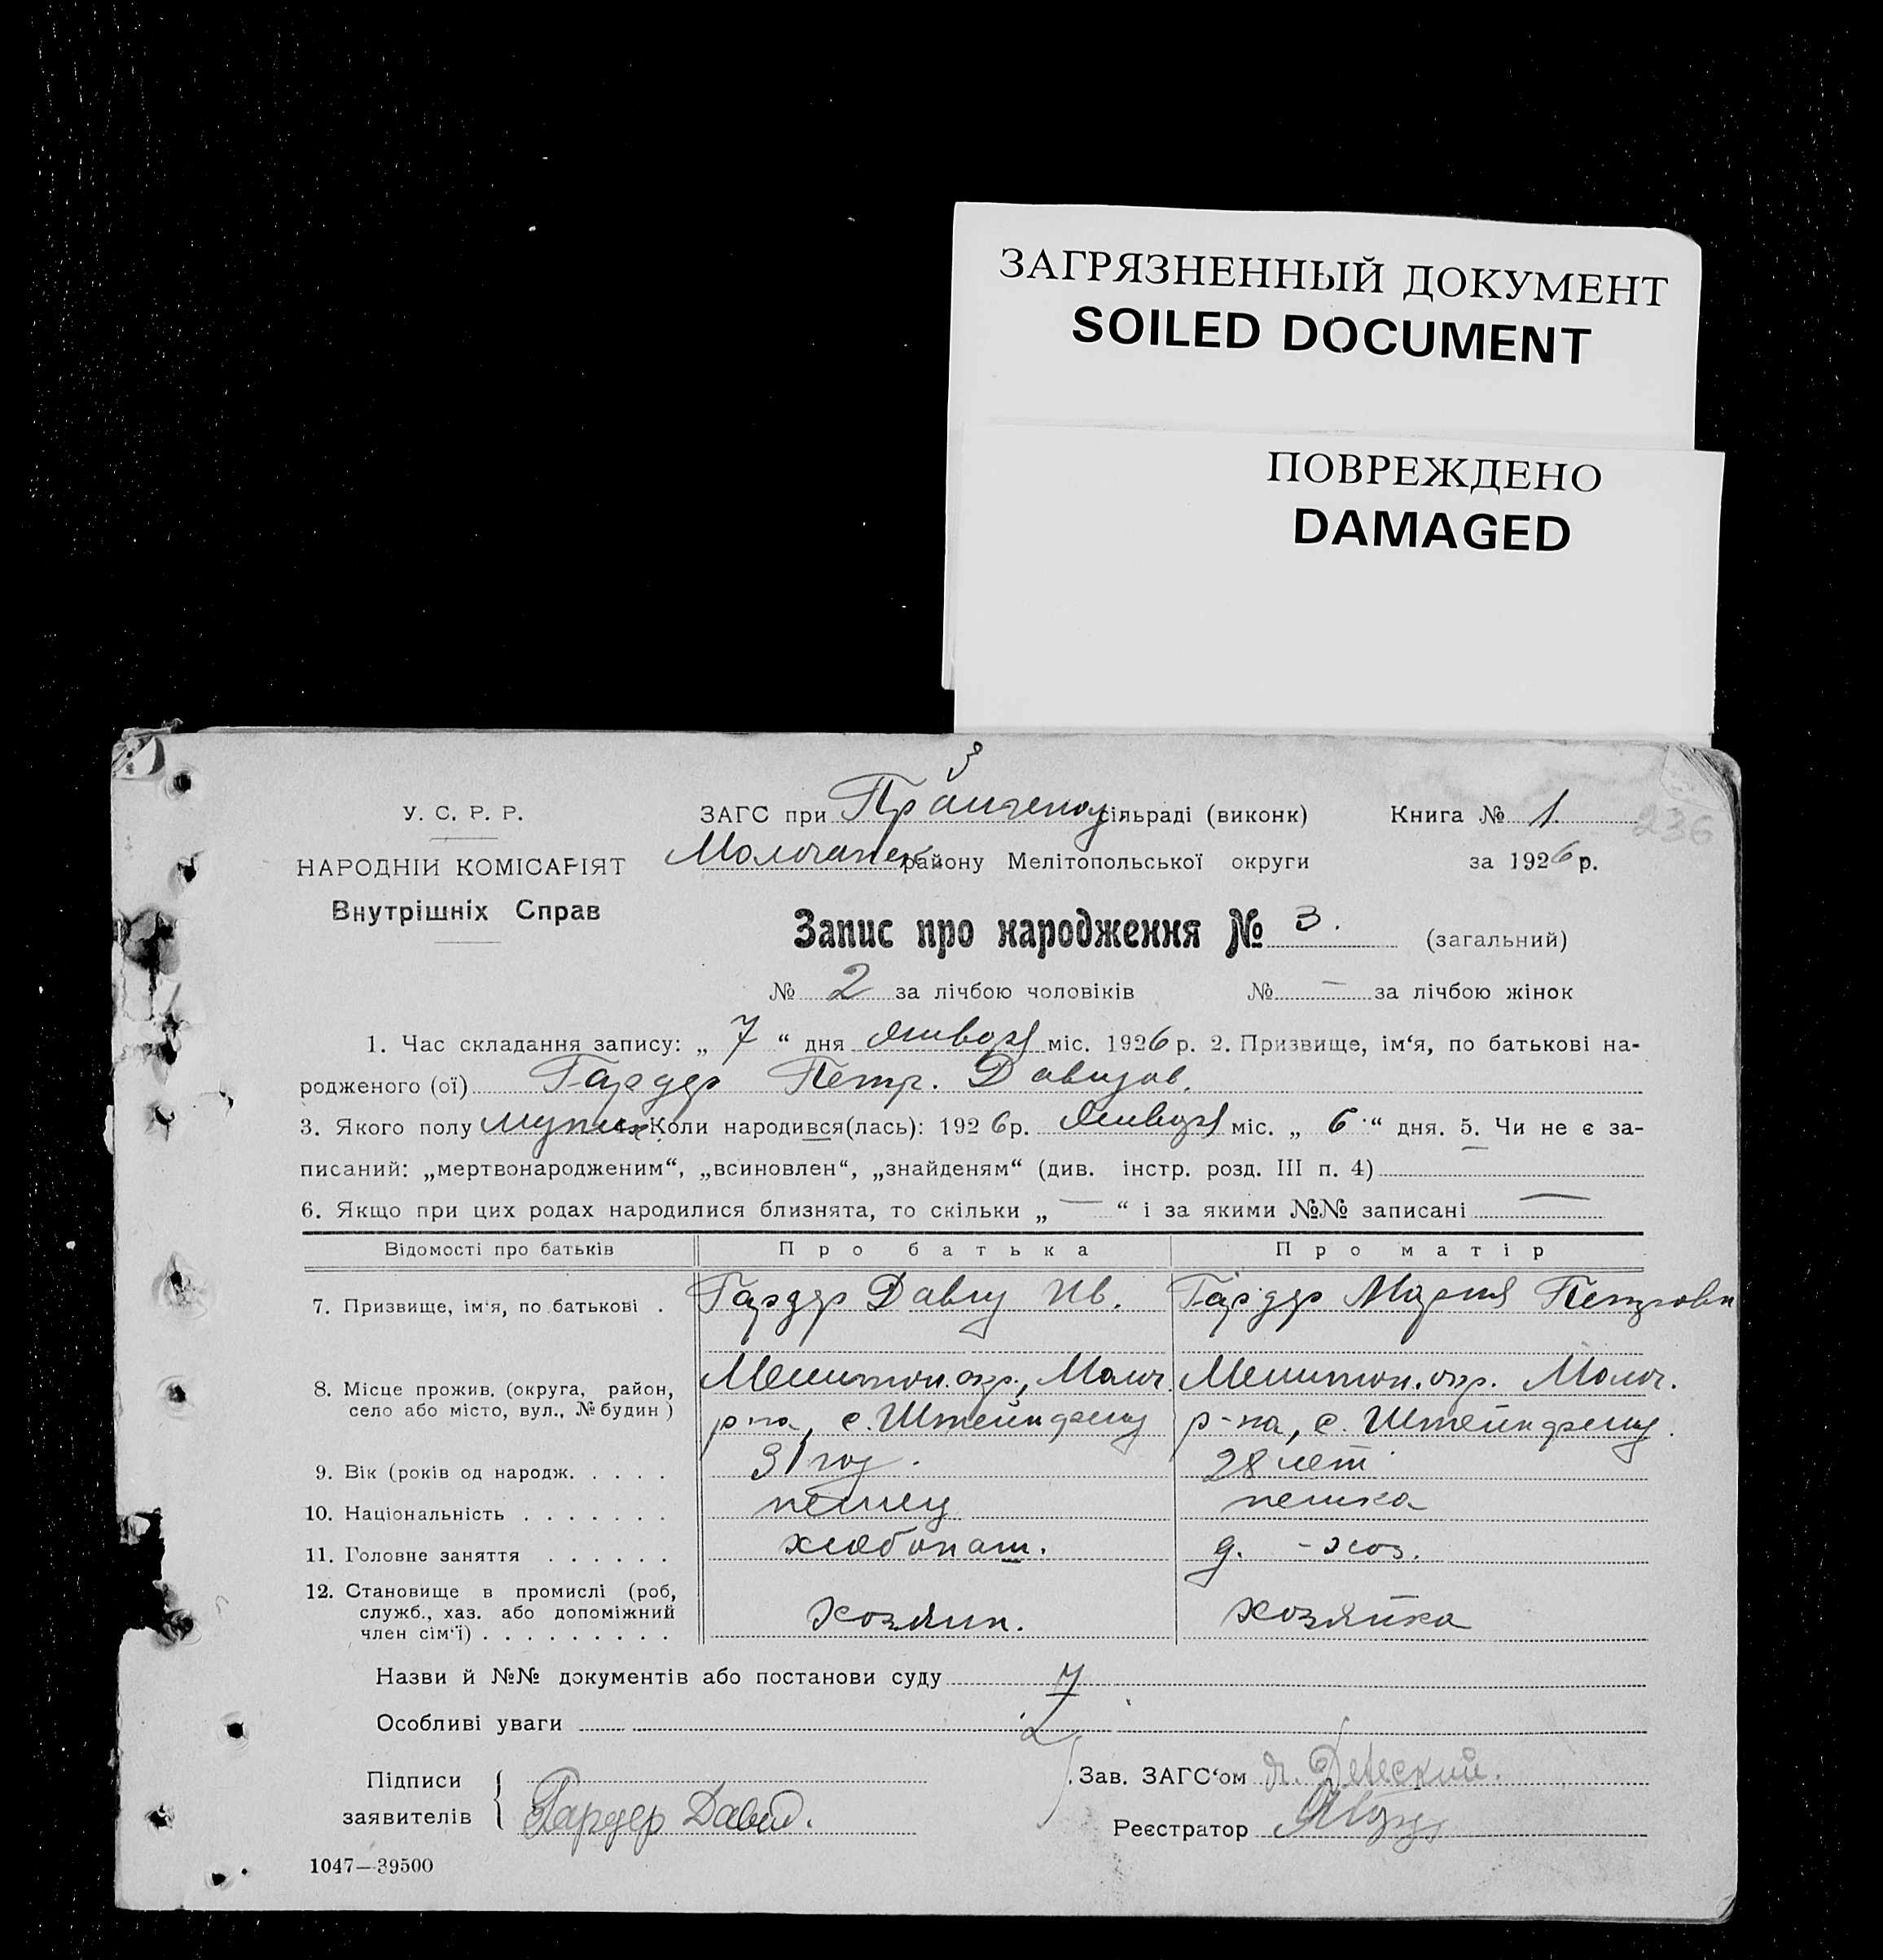 ЗАГРЯЗНЕННЫЙ ДОКУМЕНТ
SOILED DOCUMENT
ПОВРЕЖДЕНО
DAMAGED
3
У. С. Р. Р.
НАРОДНІЙ КОМІСАРІЯТ
Внутрішніх Справ
ЗАГС при сільраді (виконк)
Молочанск. району Мелітопольської округи
Книга № 1.
236
за 1926 р.
Запис про народження № 3. (загальний)
№ 2 за лічбою чоловіків № — за лічбою жінок
1. Час складання запису: „ 7 “ дня января міс. 1926 р. 2. Призвище, ім‘я, по батькові на-
родженого (ої) Гардер Петр. Давидов.
3. Якого полу мужск 4. Коли народився(лась): 1926 р. января міс. „ 6 “ дня. 5. Чи не є за-
писаний: „мертвонародженим“, „всиновлен“, „знайденям“ (див. інстр. розд. III п. 4)
6. Якщо при цих родах народилися близнята, то скільки „ — “ і за якими №№ записані —
Відомості про батьків Про батька Про матір
7. Призвище, ім‘я, по батькові . Гардер Давид Ив. Гардер Мария Петровн
8. Місце прожив. (округа, район, Мелитоп. окр., Молоч. Мелитоп. окр. Молоч.
село або місто, вул., № будин ) р-на, с. Штейнфельд р-на, с. Штейнфельд.
9. Вік (років од народж. . . . . 31 год. 28 лет
10. Національність . . . . . . . немец немка
11. Головне заняття . . . . . . хлебопаш. д. - хоз.
12. Становище в промислі (роб,
служб., хаз. або допоміжний хозяин. хозяйка
член сім‘ї) . . . . . . . . .
Назви й №№ документів або постанови суду
Особливі уваги
Підписи
заявителів Гардер Давид.
Зав. ЗАГС‘ом
Реєстратор
1047—39500